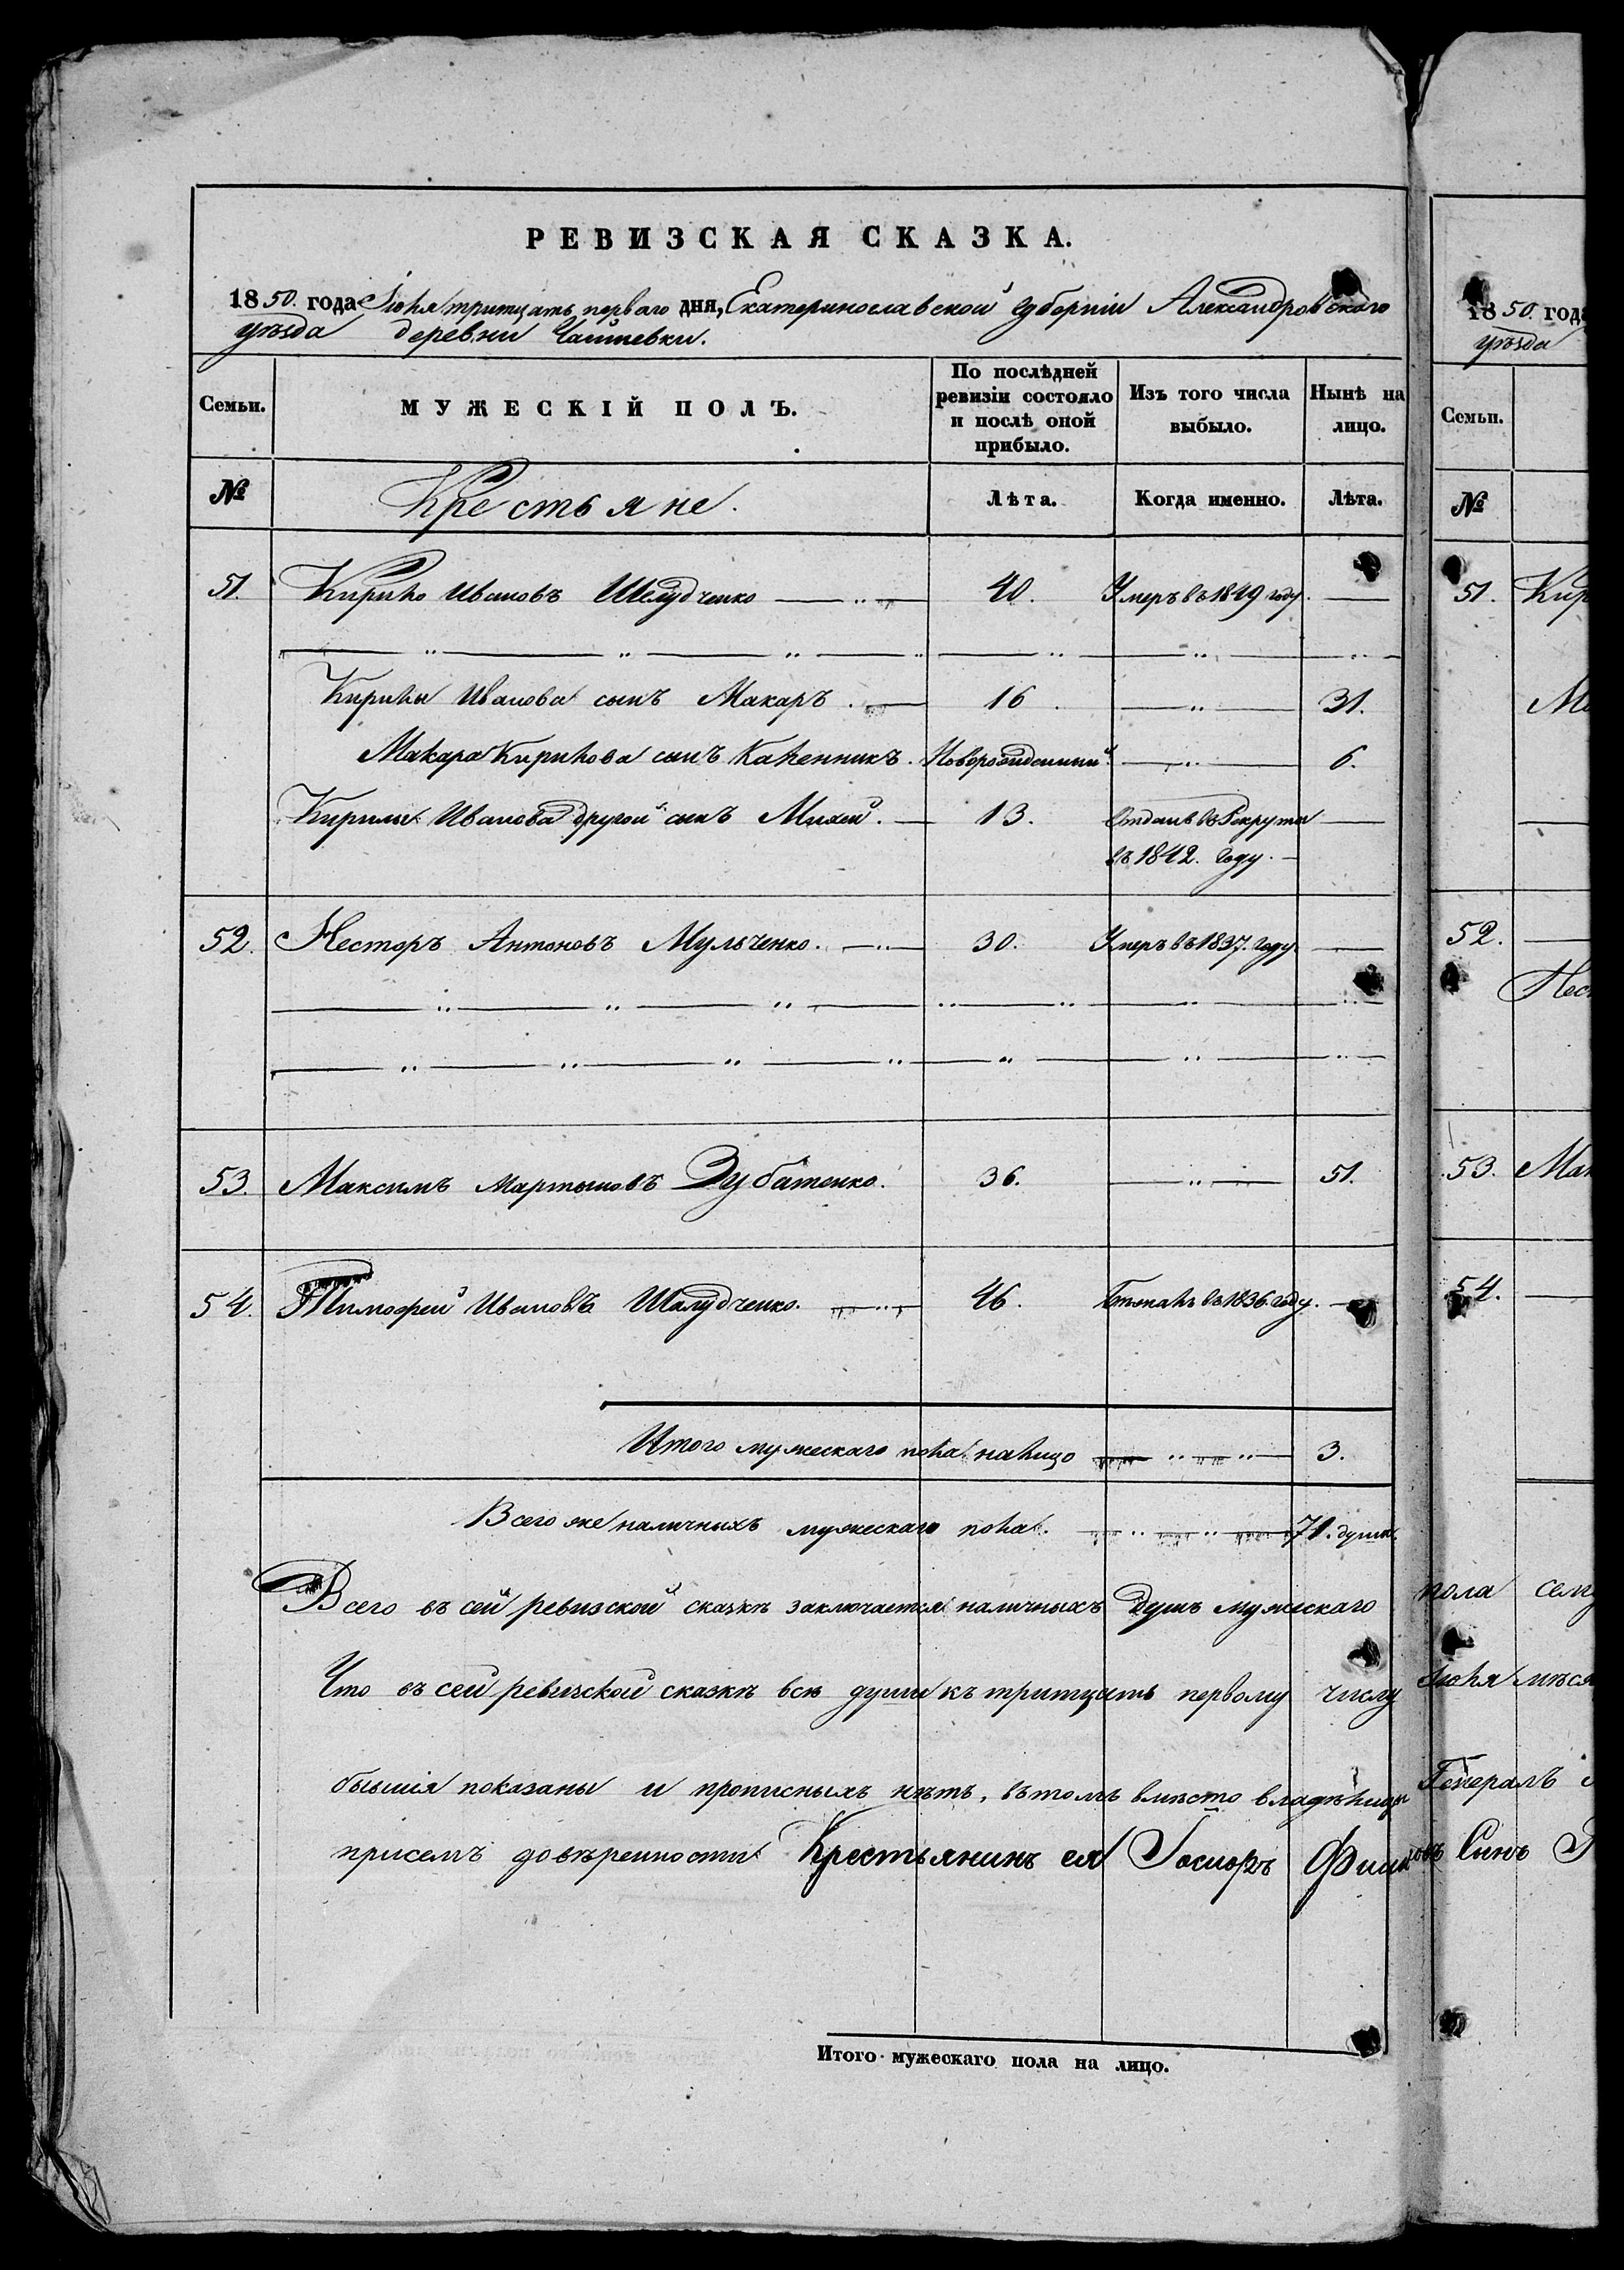 РЕВИЗСКАЯ СКАЗКА.
1850. года Іюля тритцать перваго дня, Екатеринославской губерніи Александровскаго
уѣзда деревни
Семьи. МУЖЕСКІЙ ПОЛЪ. По послѣдней ревизіи состояло и послѣ оной прибыло. Изъ того числа выбыло. Нынѣ на лицо.
№ Крестьяне. Лѣта. Когда именно. Лѣта.
51. Кирило Ивановъ Шелудченко 40. Умеръ въ 1849 году.
Кирилы Иванова сынъ Макаръ. 16 31.
Макара Кирилова сынъ Каленникъ. Новорожденный. 6.
Кирилы Иванова другой сынъ Михей. 13. Отданъ въ Рекруты
въ 1842. году.
52. Несторъ Антоновъ Мульченко. 30. Умеръ въ 1837. году.
53. Максимъ Мартыновъ Зубатенко. 36. 51.
54. Тимофей Ивановъ Шалудченко. 46. въ 1836. году.
Итого мужескаго пола налицо 3.
Всего же наличныхъ мужескаго пола. 71. душа.
Всего въ сей ревизской сказкѣ заключается наличныхъ душъ мужескаго
Что въ сей ревизской сказкѣ всѣ души къ тритцать первому числу
бывшія показаны и прописныхъ нѣтъ, въ томъ вмѣсто владѣлицы
присемъ довѣренности Крестьянинъ ея
Итого мужескаго пола на лицо.
1850. года
уѣзда
Семьи.
№
51.
52.
53.
54.
пола
Іюля
Генералъ
Синъ